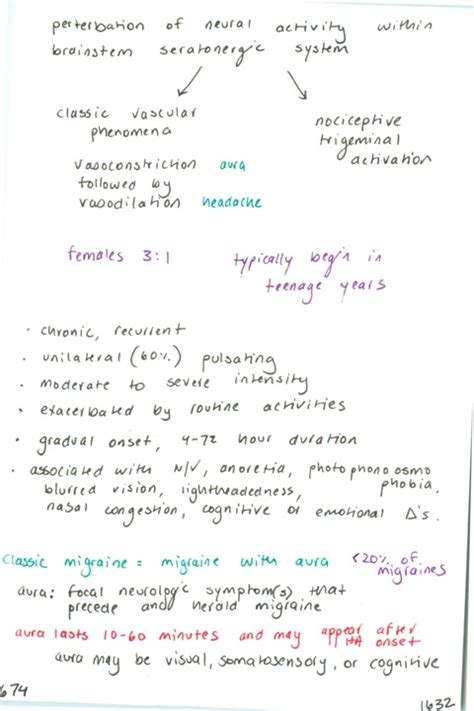 perterbation of neural activity within
brainstem seratonergic system
classic vascular
phenomena
vasoconstriction aura
followed by
vasodilation headache
nociceptive
trigeminal
activation
females 3:1
typically begin in
teenage years
· chronic, recurrent
· unilateral (60%) pulsating
· moderate to severe intensity
· exacerbated by routine activities
· gradual onset, 4-72 hour duration
· associated with N/V, anorexia, photophonoosmo
phobia,
blurred vision, lightheadedness,
nasal congestion, cognitive or emotional Δ's.
classic migraine = migraine with aura <20% of
migraines
aura: focal neurologic symptom(s) that
precede and herald migraine
aura lasts 10-60 minutes and may appear after
HA onset
aura may be visual, somatosensory, or cognitive
674
1632